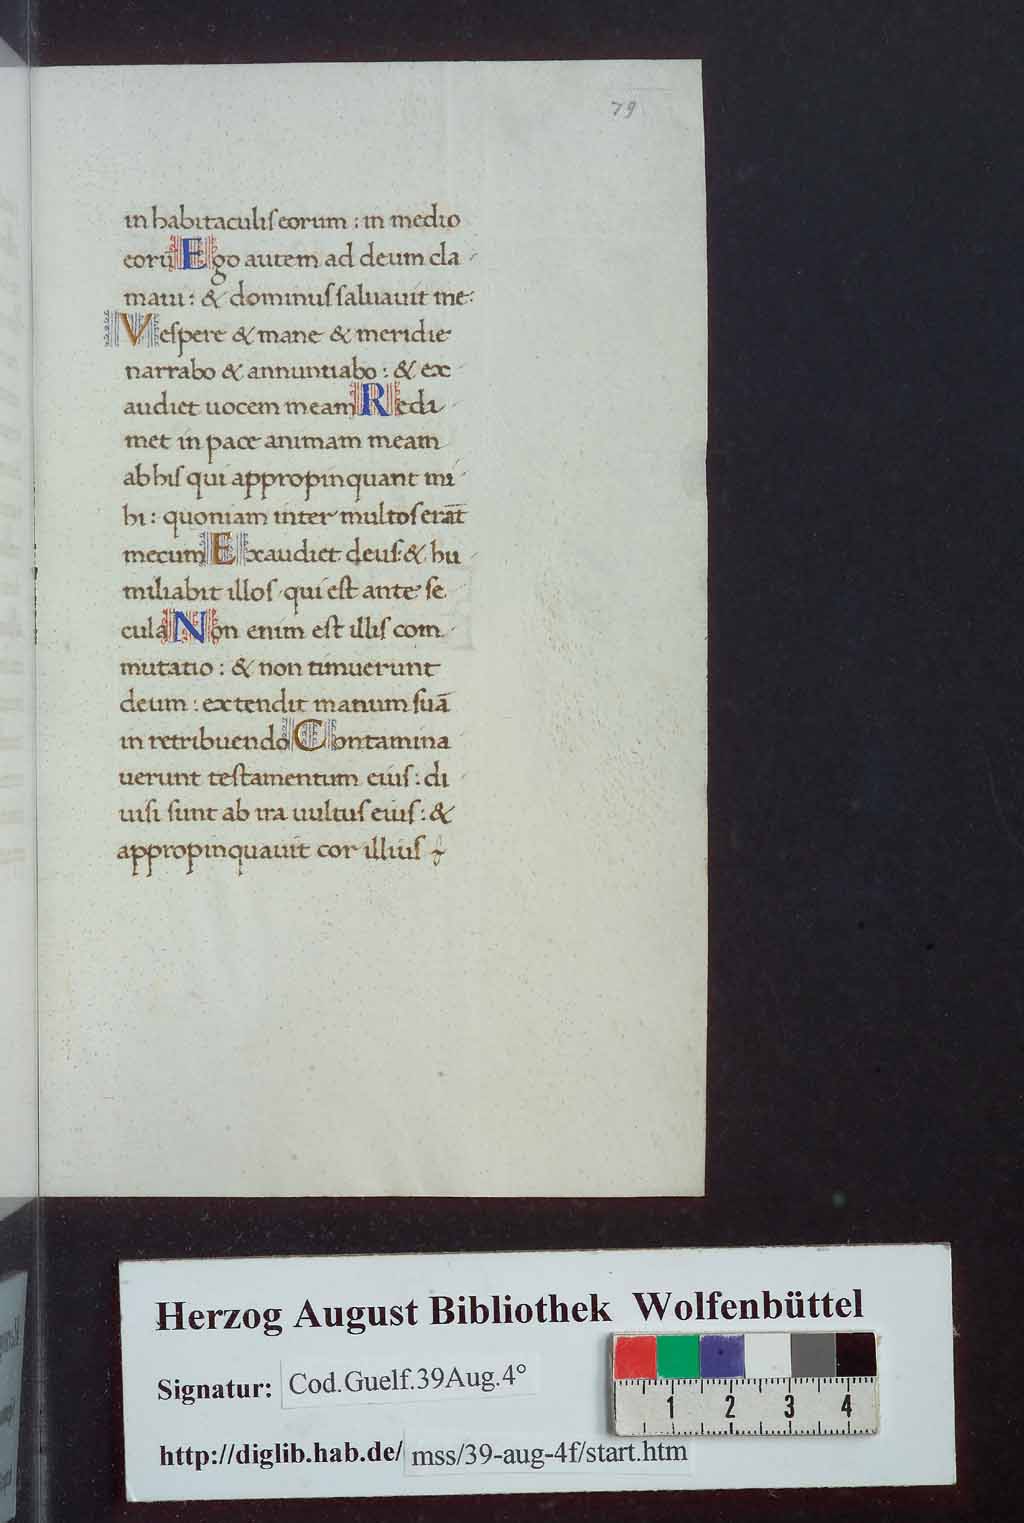 79
in habitaculiſ eorum : in medio
eorū Ego autem ad deum cla
maui : & dominuſ ſaluauit me :
Veſpere & mane & meridie
narrabo & annuntiabo : & ex
audiet uocem meam Redi
met in pace animam meam
ab hiſ qui appropinquant mi
hi : quoniam inter multoſ erāt
mecum Exaudiet deuſ : & hu
miliabit illoſ qui eſt ante ſe
cula Non enim eſt illiſ com
mutatio : & non timuerunt
deum : extendit manum ſuā
in retribuendo Contamina
uerunt teſtamentum eiuſ : di
uiſi ſunt ab ira uultuſ eiuſ : &
appropinquauit cor illiuſ
Herzog August Bibliothek Wolfenbüttel
Signatur: Cod.Guelf.39Aug.4°
1 2 3 4
http://diglib.hab.de/ mss/39-aug-4f/start.htm